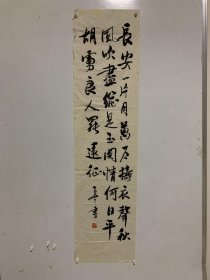 長安一片月萬户擣衣聲秋
風吹盡總是玉関情何日平
胡虜良人罷遠征